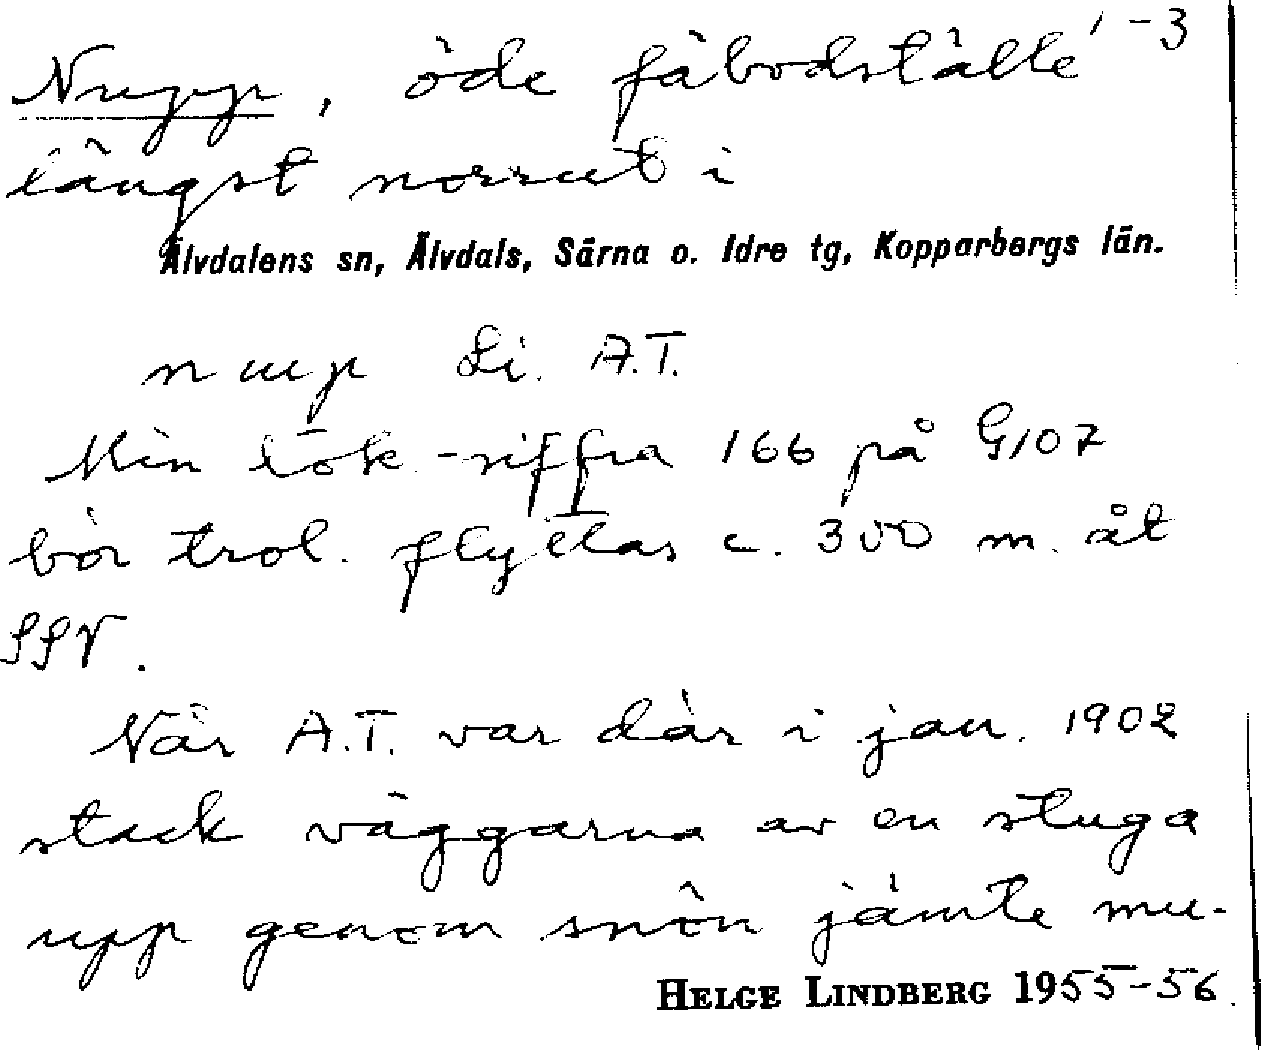 1-3
Nupp, öde fäbodställe
längst norrut i
Älvdalens sn, Älvdals, Särna o. Idre tg, Kopparbergs län.
nup Li. A.T.
Min lök-siffra 166 på G107
bör trol. flyttas c. 300 m. åt
SSV.
När A.T. var där i jan. 1902
stack väggarna av en stuga
upp genom snön jämte mu-
HELGE LINDBERG 1955-56.